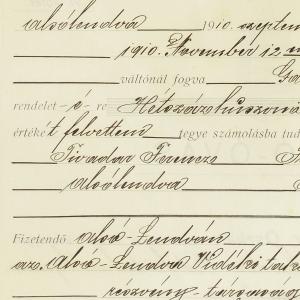 Alsólendva 1910. szeptem
1910. November 12
váltónál fogva
rendelet-é-re Hétszázhúszona
értéké t felvettem tegye számolásba tud
Tivadar Ferencz
Alsólendva
Fizetendő Alsó-Lendván
az. Alsó-Lendva Vidéki taka
részvény-társaság